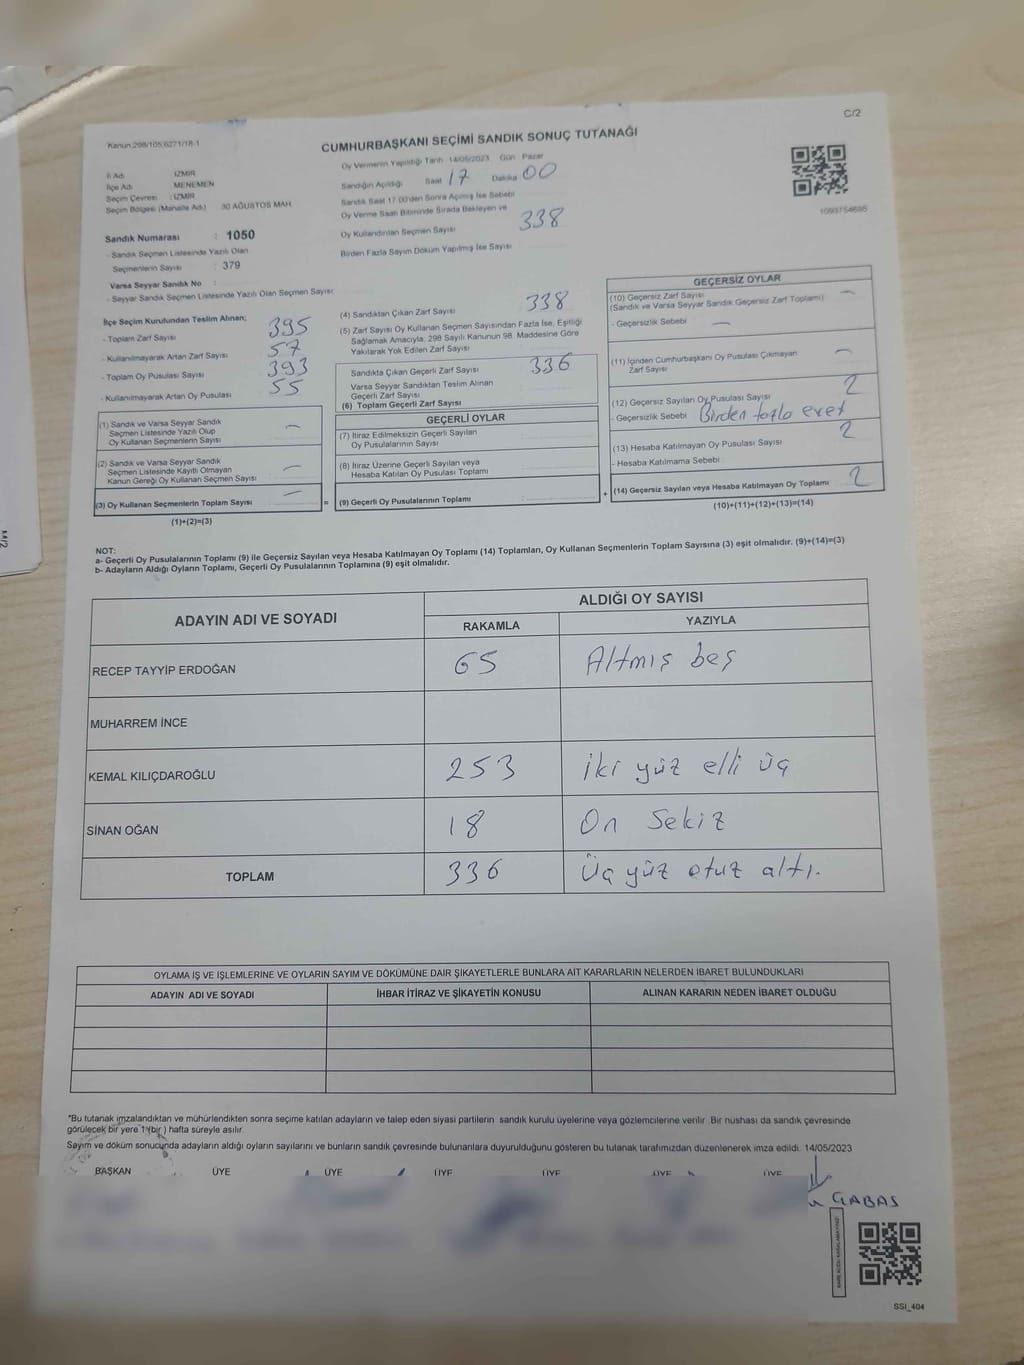 C/2
Kanun:298/105,6271/18-1
CUMHURBAŞKANI SEÇİMİ SANDIK SONUÇ TUTANAĞI
Oy Vermenin Yapıldığı Tarih 14/05/2023 Gün Pazar
İl Adı İZMİR
İlçe Adı MENEMEN
Seçim Çevresi : İZMİR
Seçim Bölgesi (Mahalle Adı) 30 AĞUSTOS MAH.
Sandığın Açıldığı Saat 17 Dakika 00
Sandık Saat 17.00'den Sonra Açılmış İse Sebebi
Oy Verme Saati Bitiminde Sırada Bekleyen ve
Oy Kullandırılan Seçmen Sayısı 338
Birden Fazla Sayım Döküm Yapılmış İse Sayısı
Sandık Numarası : 1050
- Sandık Seçmen Listesinde Yazılı Olan
Seçmenlerin Sayısı : 379
Varsa Seyyar Sandık No :
- Seyyar Sandık Seçmen Listesinde Yazılı Olan Seçmen Sayısı:
İlçe Seçim Kurulundan Teslim Alınan;
- Toplam Zarf Sayısı 395
- Kullanılmayarak Artan Zarf Sayısı 57
- Toplam Oy Pusulası Sayısı 393
- Kullanılmayarak Artan Oy Pusulası 55
(1) Sandık ve Varsa Seyyar Sandık
Seçmen Listesinde Yazılı Olup
Oy Kullanan Seçmenlerin Sayısı —
(2) Sandık ve Varsa Seyyar Sandık
Seçmen Listesinde Kayıtlı Olmayan
Kanun Gereği Oy Kullanan Seçmen Sayısı —
(3) Oy Kullanan Seçmenlerin Toplam Sayısı —
(1)+(2)=(3)
(4) Sandıktan Çıkan Zarf Sayısı 338
(5) Zarf Sayısı Oy Kullanan Seçmen Sayısından Fazla İse, Eşitliği
Sağlamak Amacıyla, 298 Sayılı Kanunun 98. Maddesine Göre
Yakılarak Yok Edilen Zarf Sayısı
Sandıkta Çıkan Geçerli Zarf Sayısı 336
Varsa Seyyar Sandıktan Teslim Alınan
Geçerli Zarf Sayısı
(6) Toplam Geçerli Zarf Sayısı
GEÇERLİ OYLAR
(7) İtiraz Edilmeksizin Geçerli Sayılan
Oy Pusulalarının Sayısı
(8) İtiraz Üzerine Geçerli Sayılan veya
Hesaba Katılan Oy Pusulası Toplamı
= (9) Geçerli Oy Pusulalarının Toplamı
GEÇERSİZ OYLAR
(10) Geçersiz Zarf Sayısı —
(Sandık ve Varsa Seyyar Sandık Geçersiz Zarf Toplamı)
- Geçersizlik Sebebi —
(11) İçinden Cumhurbaşkanı Oy Pusulası Çıkmayan
Zarf Sayısı —
(12) Geçersiz Sayılan Oy Pusulası Sayısı 2
- Geçersizlik Sebebi Birden fazla evet
(13) Hesaba Katılmayan Oy Pusulası Sayısı 2
- Hesaba Katılmama Sebebi :
+ (14) Geçersiz Sayılan veya Hesaba Katılmayan Oy Toplamı 2
(10)+(11)+(12)+(13)=(14)
NOT:
a- Geçerli Oy Pusulalarının Toplamı (9) ile Geçersiz Sayılan veya Hesaba Katılmayan Oy Toplamı (14) Toplamları, Oy Kullanan Seçmenlerin Toplam Sayısına (3) eşit olmalıdır. (9)+(14)=(3)
b- Adayların Aldığı Oyların Toplamı, Geçerli Oy Pusulalarının Toplamına (9) eşit olmalıdır.
ADAYIN ADI VE SOYADI ALDIĞI OY SAYISI
RAKAMLA YAZIYLA
RECEP TAYYİP ERDOĞAN 65 Altmış beş
MUHARREM İNCE
KEMAL KILIÇDAROĞLU 253 iki yüz elli üç
SİNAN OĞAN 18 On Sekiz
TOPLAM 336 Üç yüz otuz altı.
OYLAMA İŞ VE İŞLEMLERİNE VE OYLARIN SAYIM VE DÖKÜMÜNE DAİR ŞİKAYETLERLE BUNLARA AİT KARARLARIN NELERDEN İBARET BULUNDUKLARI
ADAYIN ADI VE SOYADI İHBAR İTİRAZ VE ŞİKAYETİN KONUSU ALINAN KARARIN NEDEN İBARET OLDUĞU
*Bu tutanak imzalandıktan ve mühürlendikten sonra seçime katılan adayların ve talep eden siyasi partilerin sandık kurulu üyelerine veya gözlemcilerine verilir. Bir nüshası da sandık çevresinde
görülecek bir yere 1 (bir ) hafta süreyle asılır.
Sayım ve döküm sonucunda adayların aldığı oyların sayılarını ve bunların sandık çevresinde bulunanlara duyurulduğunu gösteren bu tutanak tarafımızdan düzenlenerek imza edildi. 14/05/2023
BAŞKAN ÜYE ÜYE ÜYE ÜYE ÜYE ÜYE
SSI_404